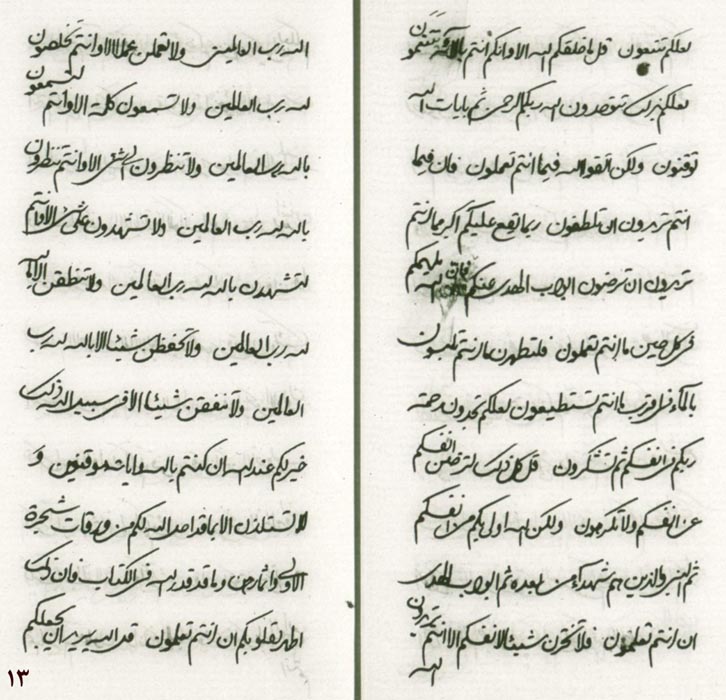 لعلكم تتقون قل ما خلقكم الله الا وانكم انتم بالاخرة
لعلكم بذلك تتوحدون الله ربكم الرحمن ثم بايات الله
توقنون ولكن اتقوا الله فيما انتم تعملون فان فيما
انتم تريدون ان تلطفون ربما يقع عليكم اكبر مما انتم
تريدون ان ترضون ابواب الهدى عنكم فان الله
في كل حين ما انتم تعملون فلتطهرن ما انتم تلبسون
بالماء اقرب ما انتم تستطيعون لعلكم تجدون رحمة
ربكم في انفسكم ثم تشكرون قل كل ذلك لترضين انفسكم
عن انفسكم ولا تكرهون ولكن الله اولى بكم من انفسكم
ثم النبي والذين هم شهداء من بعده ثم ابواب الهدى
ان انتم تعلمون فلا تحزن شيئا لانفسكم الا انتم تريدون
الله
الله رب العالمين ولا تعملن عملا الا وانتم تخلصون
لله رب العالمين ولا تسمعون كلمة الا وانتم لتسمعون
بالله رب العالمين ولا تنظرون الى شئ الا وانتم تنظرون
بالله لله رب العالمين ولا تشهدون على شئ الا وانتم
لتشهدن بالله لله رب العالمين ولا تنطقن الا بالله
لله رب العالمين ولا تحفظن شيئا الا بالله لله رب
العالمين ولا تنفقن شيئا الا في سبيل الله ذلك
خير لكم عند الله ان كنتم بالله واياته موقنين و
لا تستلذن الا بما قد احل الله لكم من ورقات شجرة
الاولى واثمارهن وما قد قدر الله في الكتاب فان ذلك
اطهر لقلوبكم ان انتم تعلمون قل الله يريد ان يجعلكم
١٣